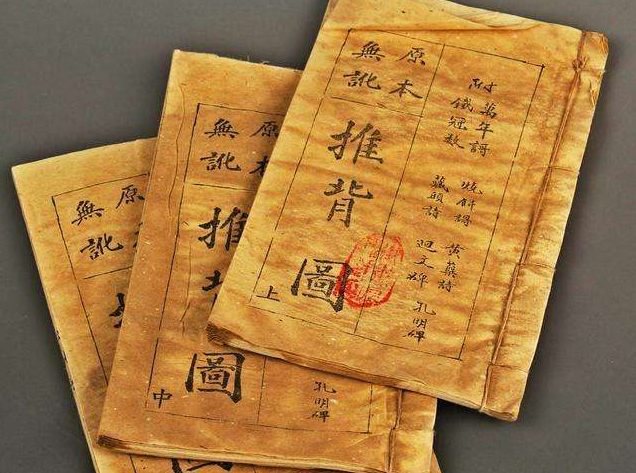 附
萬年謌 燒餅謌 黃蘗詩 孔明碑
鐵冠數 藏頭詩 迴文碑
原本
無訛
推背圖
上
孔明碑
原本
無訛
推
圖
中
原
無訛